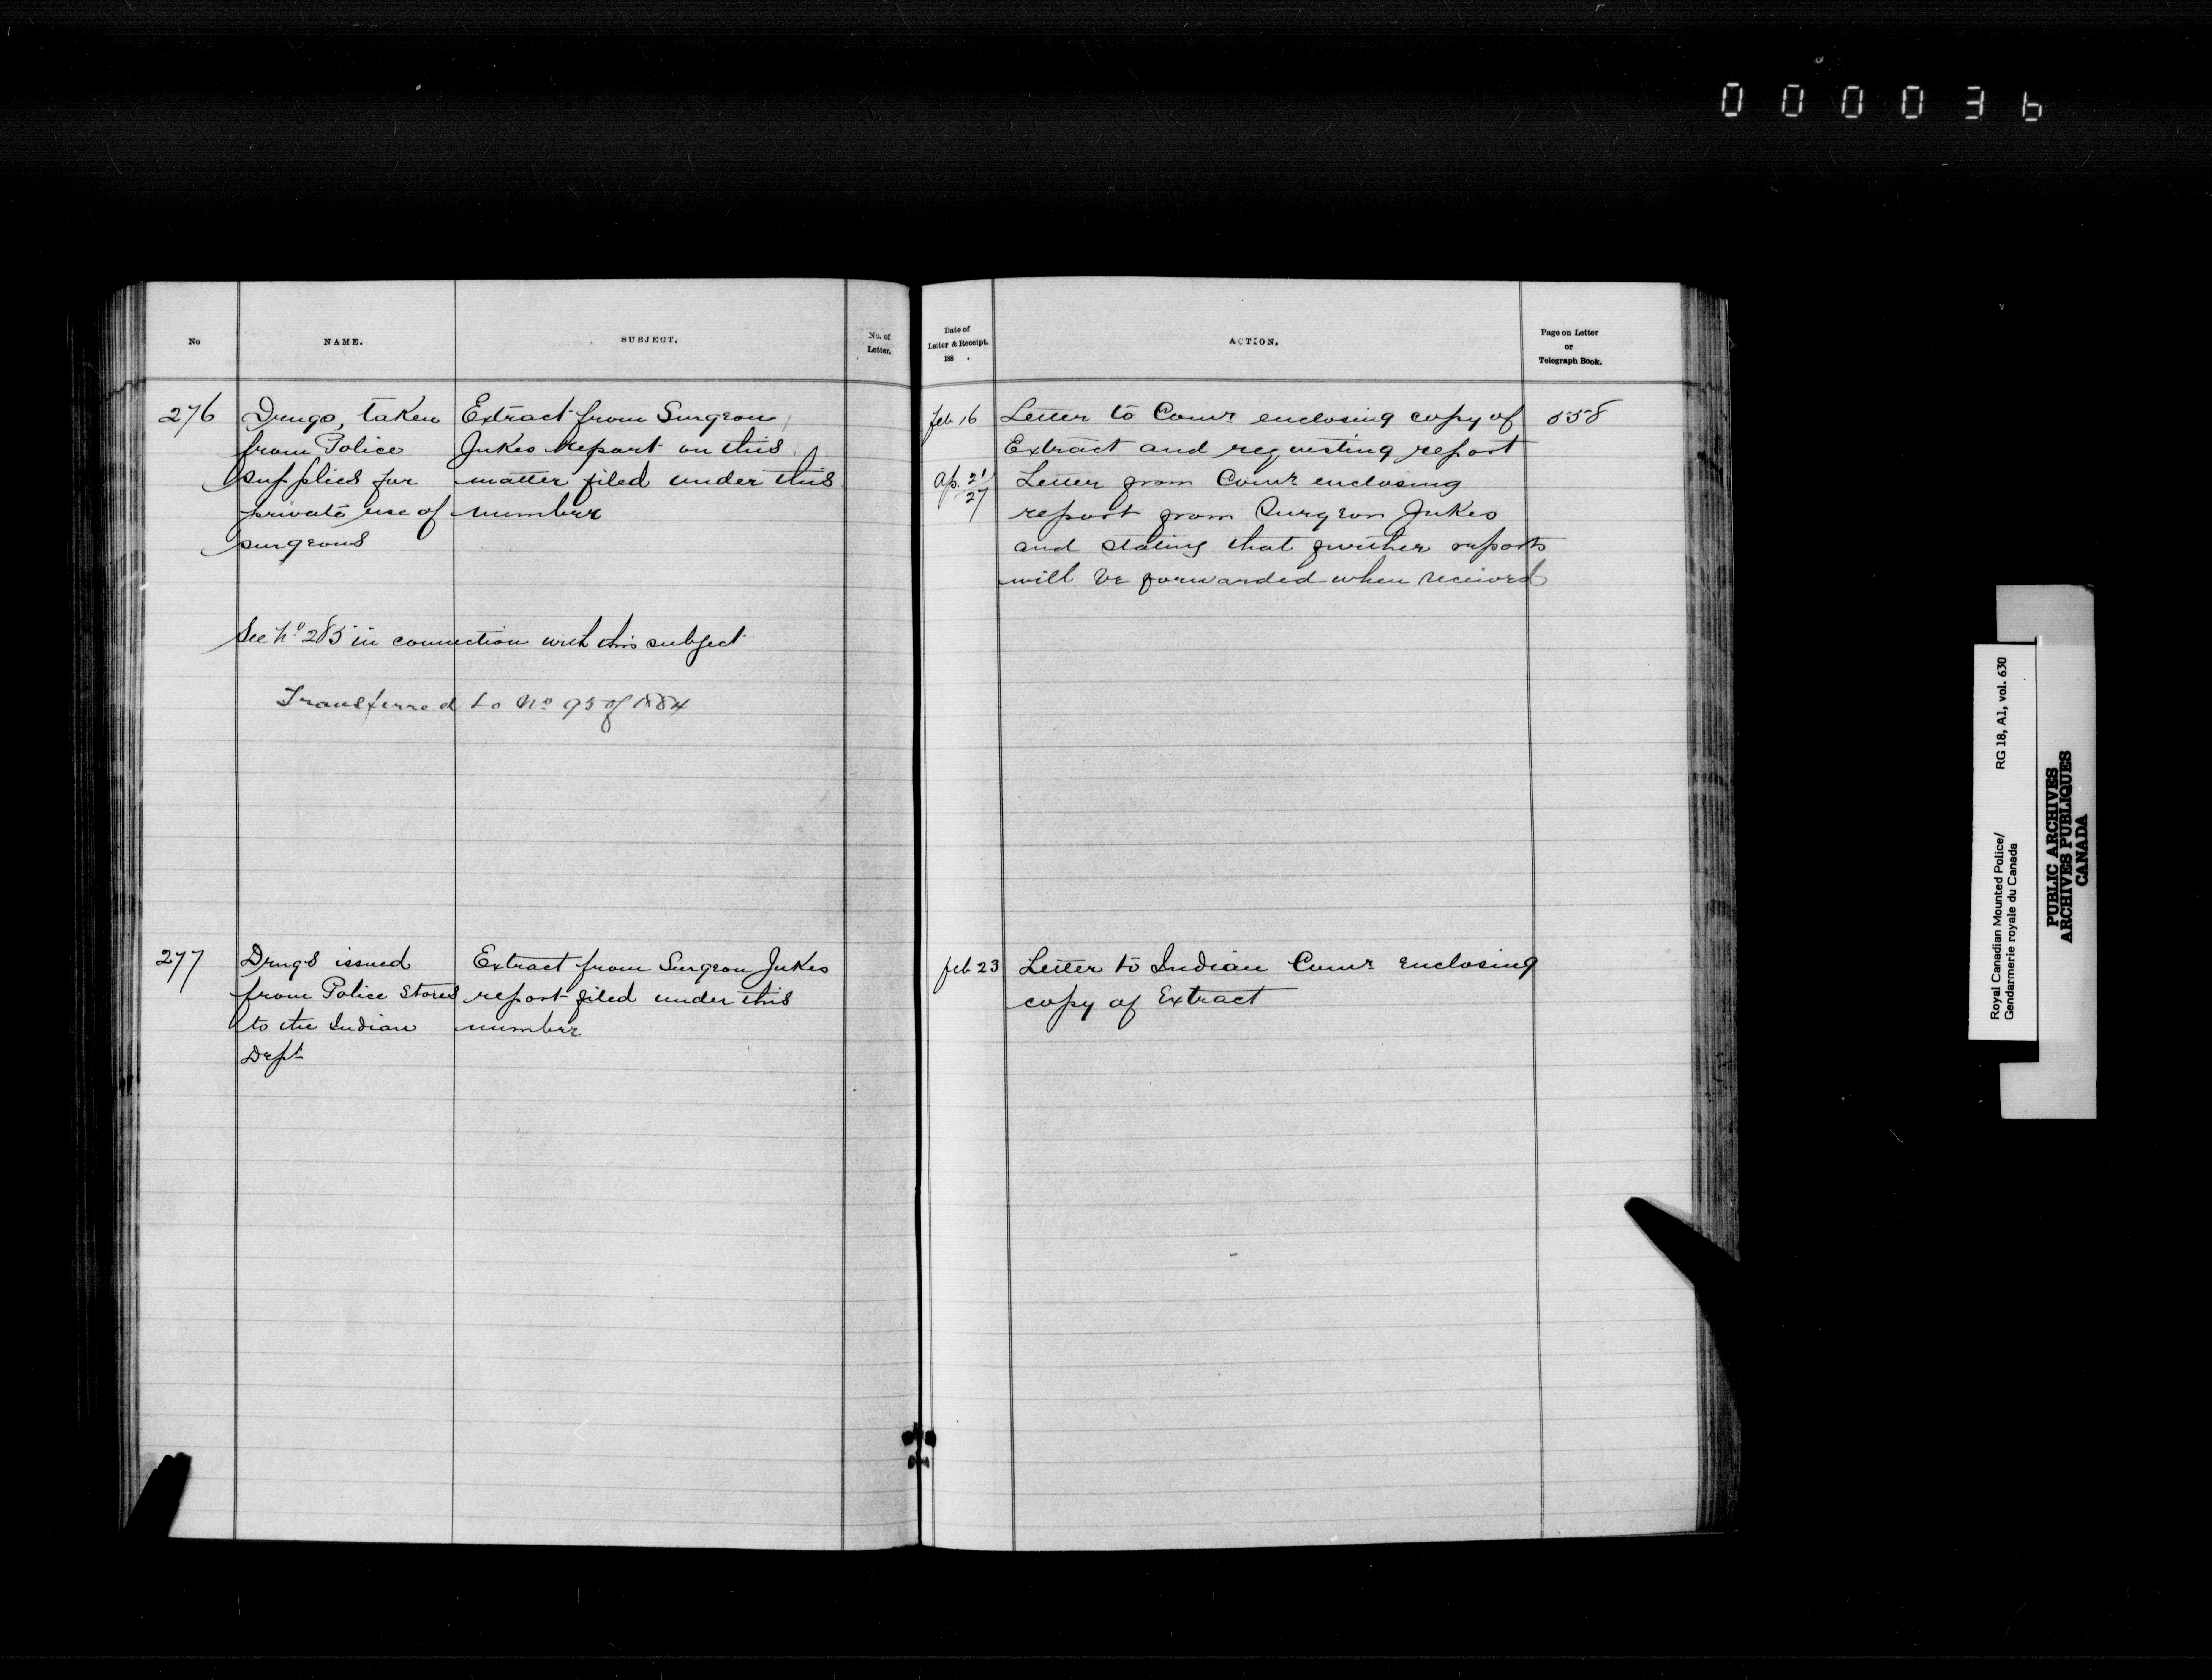 000036
No
NAME.
SUBJECT.
No. of
Letter.
276
Drugs, taken
from Police
supplies for
private use of
surgeons
Extract from Surgeon
Jukes Report on this
matter filed under this
number
See No 285 in connection with this subject
Transferred to No 95 of 1884
277
Drugs issued
from Police Stores
to the Indian
Dept
Extract from Surgeon Jukes
report filed under this
number
Date of
Letter & Receipt.
188 .
ACTION.
Page on Letter
or
Telegraph Book.
Feb 16
Letter to Comr enclosing copy of
558
Extract and requesting report
Ap. 21/27
Letter from Comr enclosing
report from Surgeon Jukes
and stating that further reports
will be forwarded when received
Feb 23
Letter to Indian Comr enclosing
copy of Extract
Royal Canadian Mounted Police/
Gendarmerie royale du Canada
RG 18, A1, vol. 630
PUBLIC ARCHIVES
ARCHIVES PUBLIQUES
CANADA